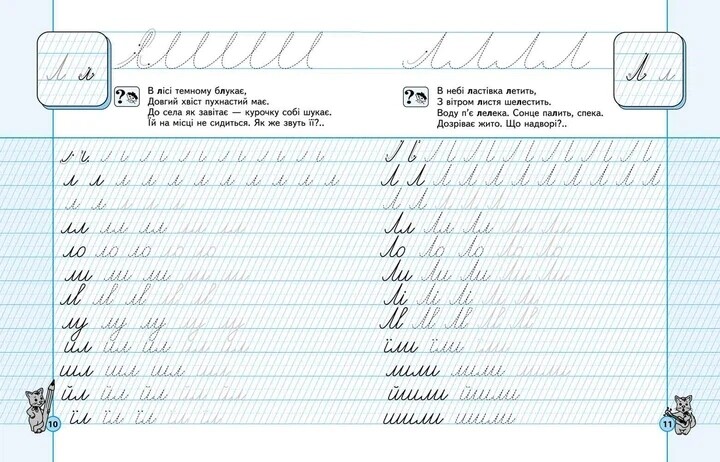 Л л
В лісі темному блукає,
Довгий хвіст пухнастий має.
До села як завітає — курочку собі шукає.
Їй на місці не сидиться. Як же звуть її?..
л л л л л л л л л л л
л л л л л
лл лл лл лл лл
ло ло ло ло ло ло
ли ли ли ли ли
лв лв лв лв лв
лу лу лу лу лу
ил ил ил ил ил
шл шл шл шл
йл йл йл йл йл
їл їл їл їл їл
10
Л л
В небі ластівка летить,
З вітром листя шелестить.
Воду п’є лелека. Сонце палить, спека.
Дозріває жито. Що надворі?..
Л Л Л Л Л Л Л Л Л Л Л
Л Л Л Л Л
Лл Лл Лл Лл Лл
Ло Ло Ло Ло Ло
Ли Ли Ли Ли Ли
Лі Лі Лі Лі Лі
Лв Лв Лв Лв Лв
їли їли їли
мили мили мили
йшли йшли
шили шили
11